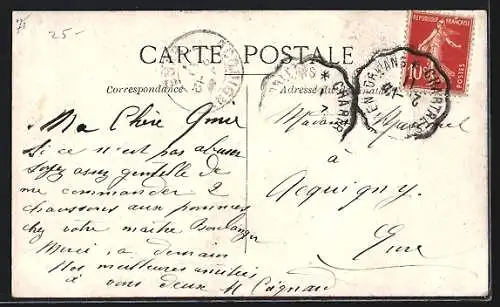 25-
CARTE POSTALE
Correspondance
Adresse du
RÉPUBLIQUE FRANÇAISE
10
POSTES
ORLÉANS * CHARTRES
Ma Chère
Si ce n'est pas abuser
soyez assez gentille de
me commander 2
chaussons aux pommes
chez votre maître Boulanger
Merci, à demain
Nos meilleures amitiés
à vous deux
Madame
à
Acquigny
Eure